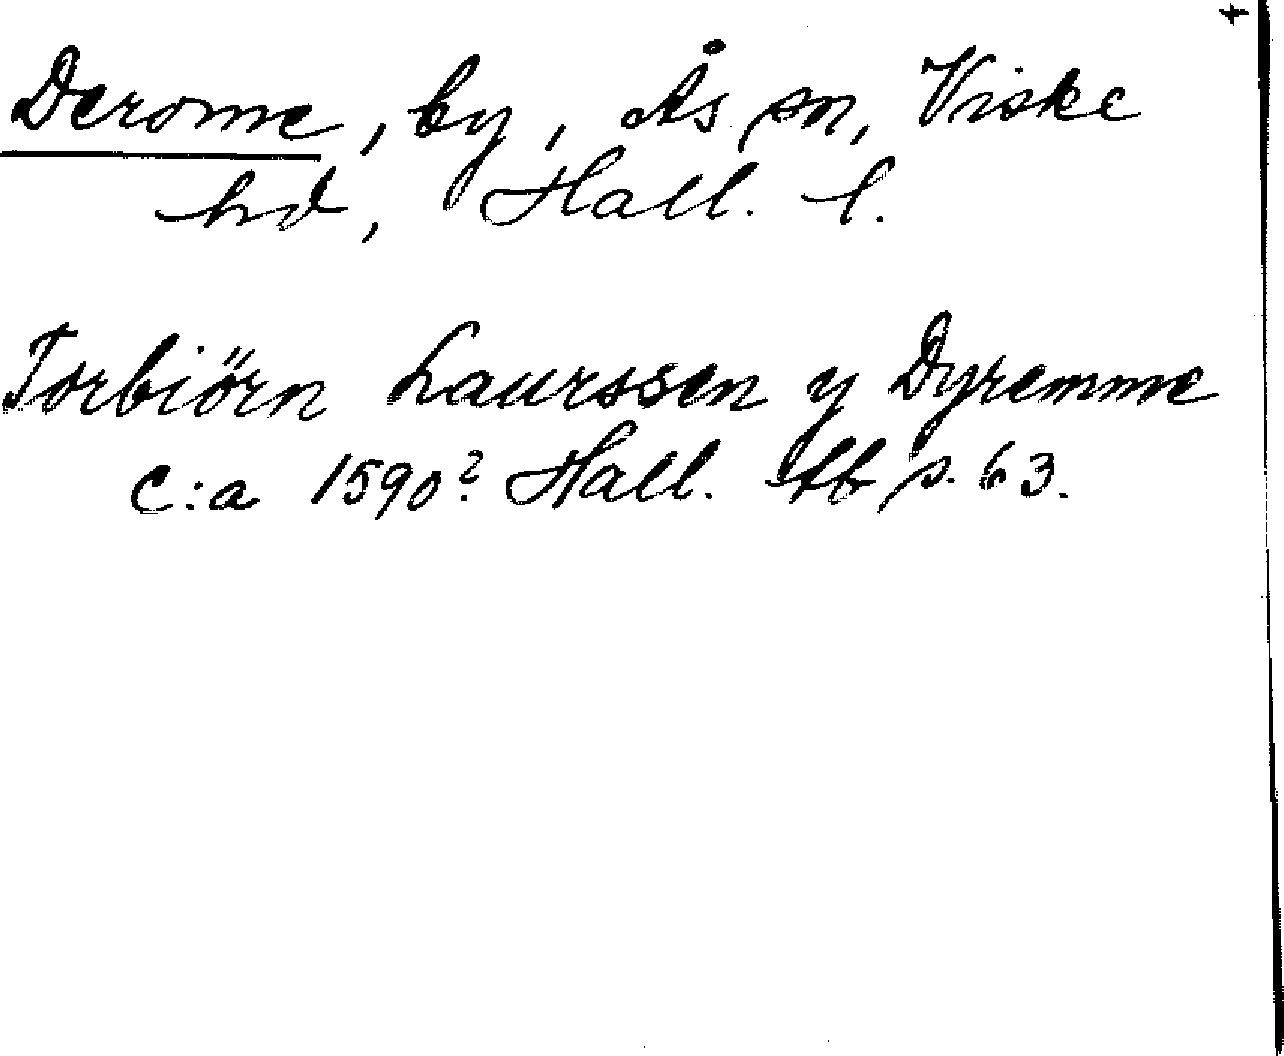 Derome, by, Ås sn, Viske
hd, Hall. l.
Torbiörn Laurssen y Dyremme
c:a 1590? Hall. Äb s. 63.